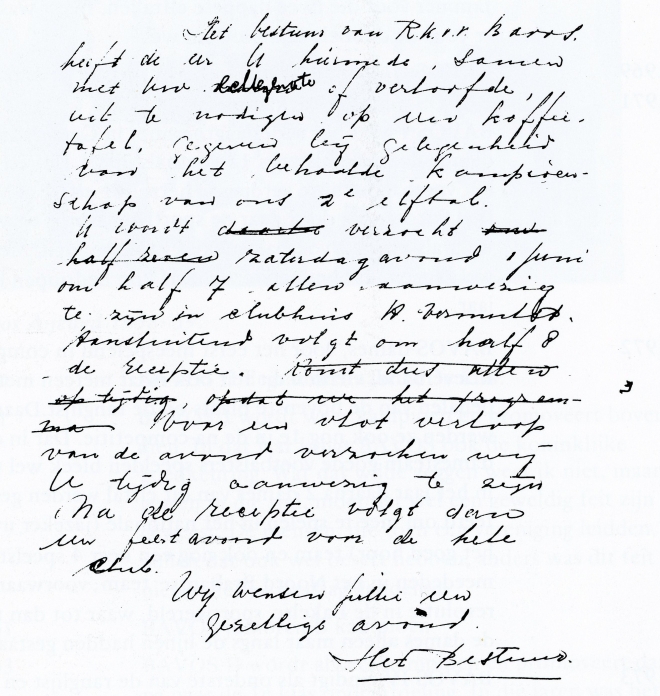 Het bestuur van R.k.v.v. Baros.
heeft de eer U hiermede, samen
met uw echtgenote of verloofde,
uit te nodigen op een koffie-
tafel, gegeven bij gelegenheid
van het behaalde kampioen-
schap van ons 2e elftal.
U wordt daarto verzocht om
half zeven zaterdagavond 1 juni
om half 7 allen aanwezig
te zijn in clubhuis A. Vermulst.
Aansluitend volgt om half 8
de receptie. Komt dus allen
op tijdig, opdat we het program-
ma Voor een vlot verloop
van de avond verzoeken wij
U tijdig aanwezig te zijn
Na de receptie volgt dan
een feestavond voor de hele
club.
Wij wensen jullie een
gezellige avond.
Het Bestuur.